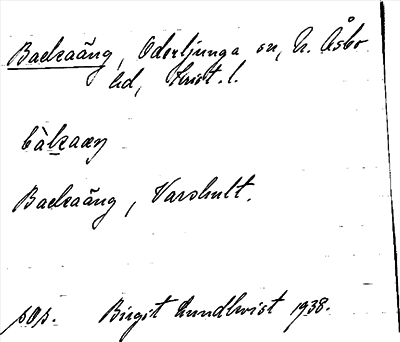 Backaäng, Oderljunga sn, N. Åsbo
hd, Krist. l.
bàkaæŋ
Backaäng, Varshult.
sOs. Birgit Lundkvist 1938.